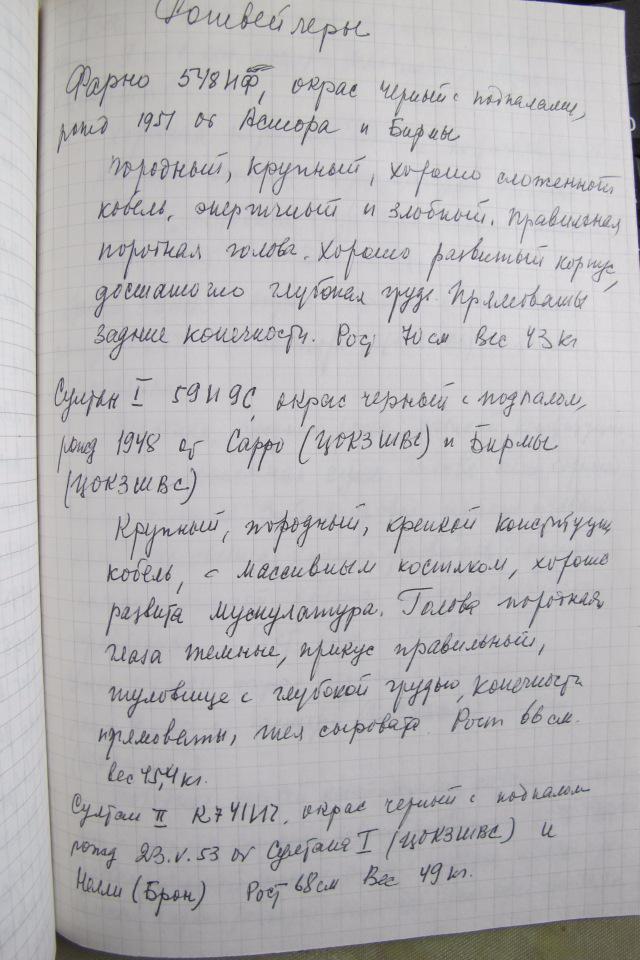 Ротвейлеры
Фарно 548НФ, окрас черный с подпалами,
рожд 1951 от Астора и Бирмы
породный, крупный, хорошо сложенный
кобель, энергичный и злобный. Правильная
породная голова. Хорошо развитый корпус,
достаточно глубокая грудь. Прямоваты
задние конечности. Рост 70 см Вес 43 кг
Султан I 59Н9С, окрас черный с подпалом,
рожд 1948 от Сарро (ЦОКЗШВС) и Бирмы
(ЦОКЗШВС)
Крупный, породный, крепкой конституции
кобель, с массивным костяком, хорошо
развита мускулатура. Голова породная,
глаза темные, прикус правильный,
туловище с глубокой грудью, конечности
прямоваты, шея сыровата. Рост 66 см.
вес 45,4 кг.
Султан II окрас черный с подпалом
рожд 23.V.53 от Султана I (ЦОКЗШВС) и
Нелли (Брон) Рост 68 см Вес 49 кг.